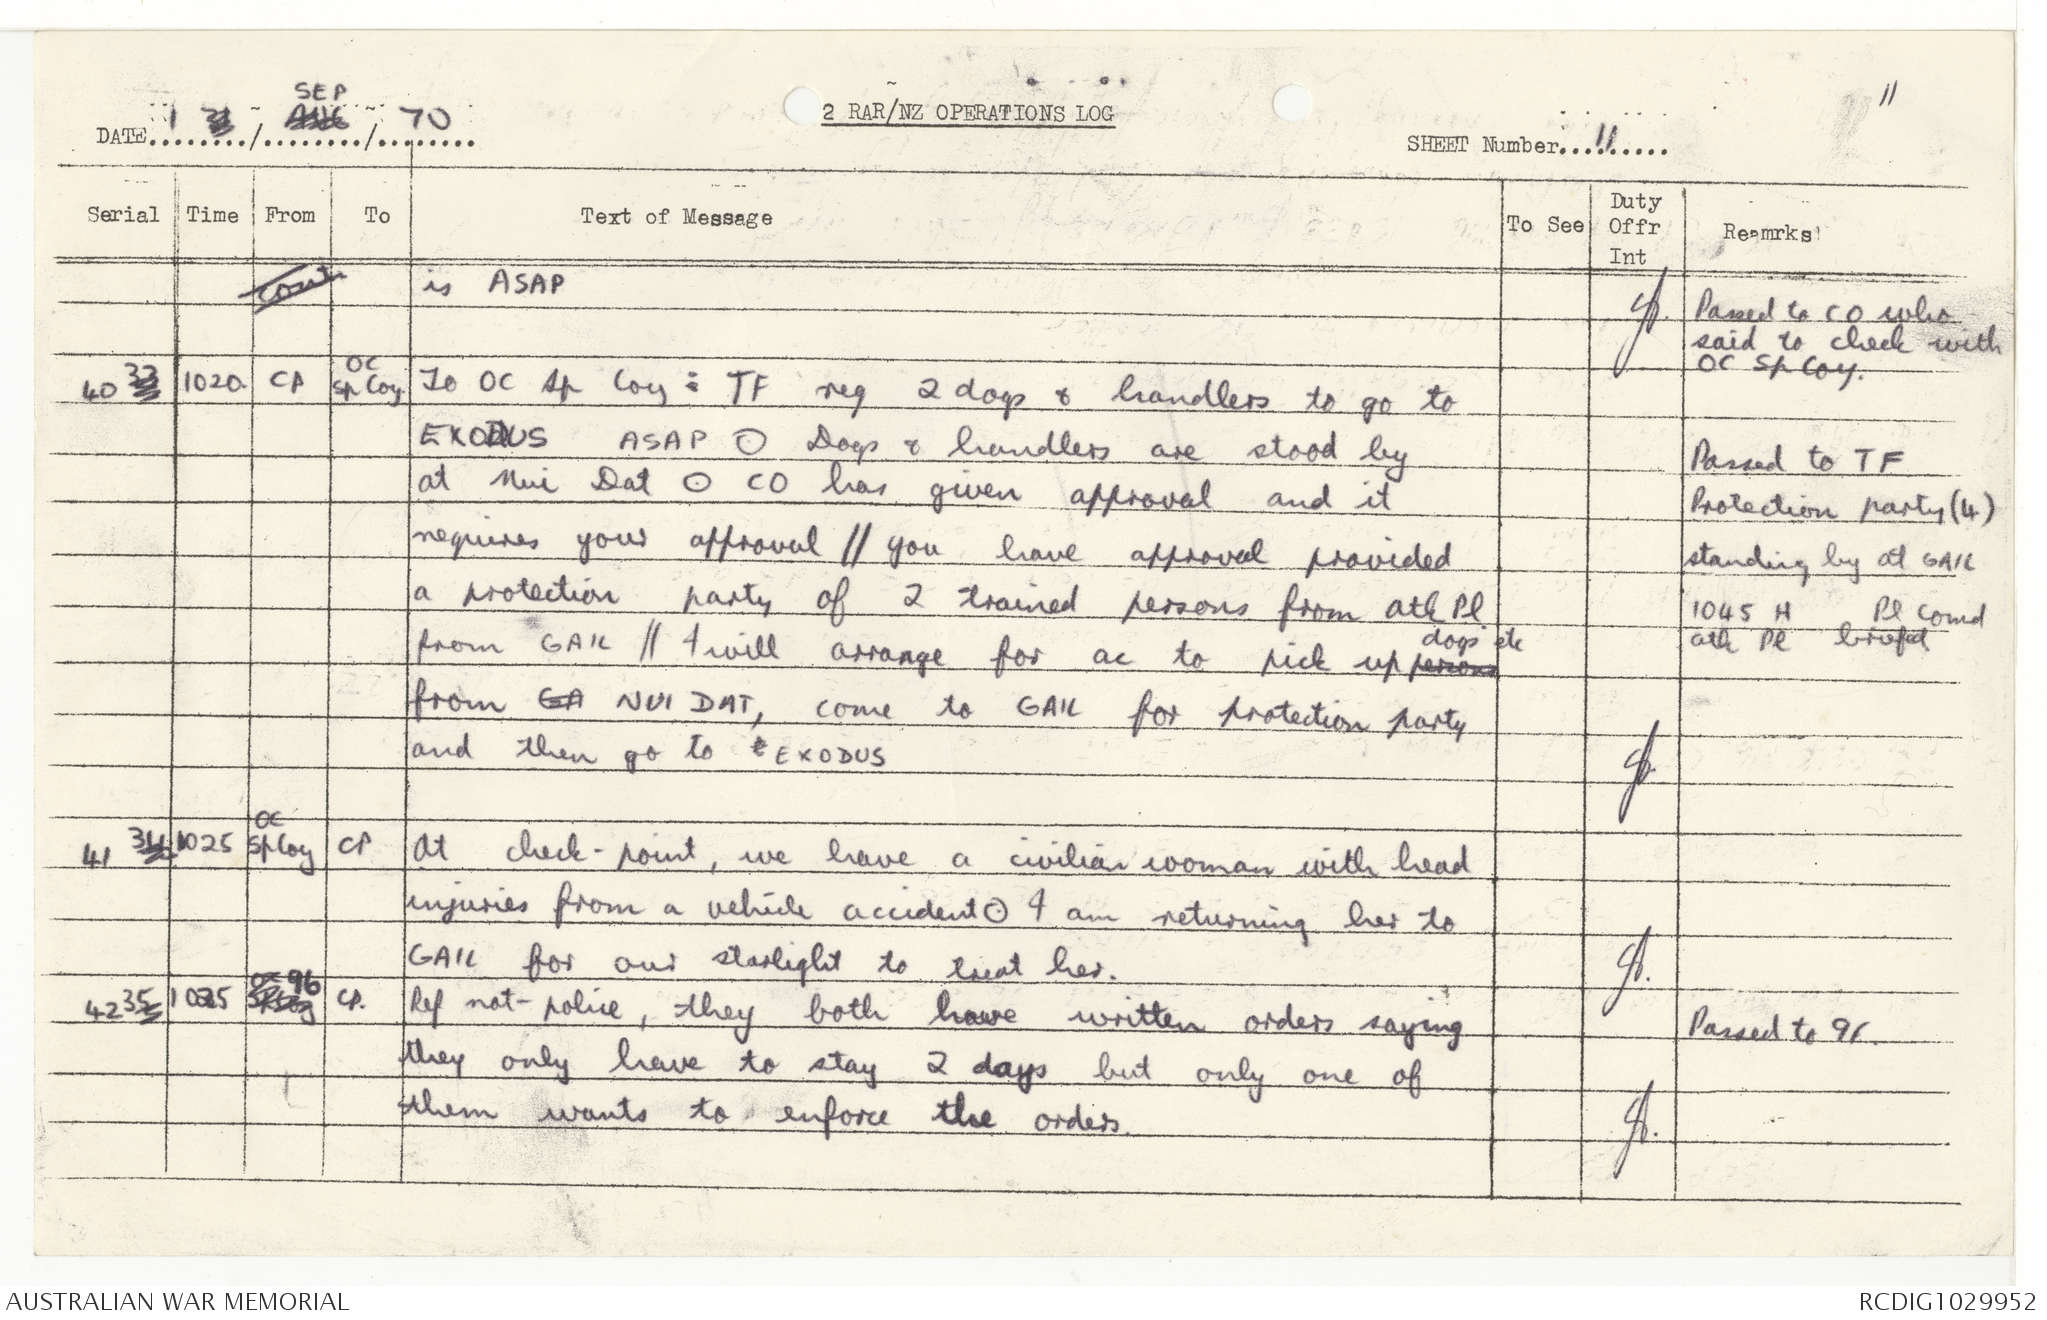 11
2 RAR/NZ OPERATIONS LOG
SEP
DATE 1 31 / AUG / 70
SHEET Number 11
Serial Time From To Text of Message To See Duty Offr Int Reamrks
cont is ASAP
Passed to CO who
said to check with
OC Sp Coy.
40 33 1020. CP OC Sp Coy. To OC Sp Coy : TF req 2 dogs & handlers to go to
EXODUS ASAP ⊙ Dogs & handlers are stood by
Passed to TF
at Nui Dat ⊙ CO has given approval and it
Protection party (4)
requires your approval // you have approval provided
standing by at GAIL
a protection party of 2 trained persons from atk Pl
1045 H Pl Comd
from GAIL // I will arrange for ac to pick up persons dogs etc
atk Pl briefed
from GA NUI DAT, come to GAIL for protection party
and then go to E EXODUS
41 34 1025 OC Sp Coy CP At check-point, we have a civilian woman with head
injuries from a vehicle accident ⊙ I am returning her to
GAIL for our starlight to treat her.
42 35 1035 OC Sp Coy 96 CP. Ref nat-police, they both have written orders saying
Passed to 96.
they only have to stay 2 days but only one of
them wants to enforce the orders.
AUSTRALIAN WAR MEMORIAL
RCDIG1029952